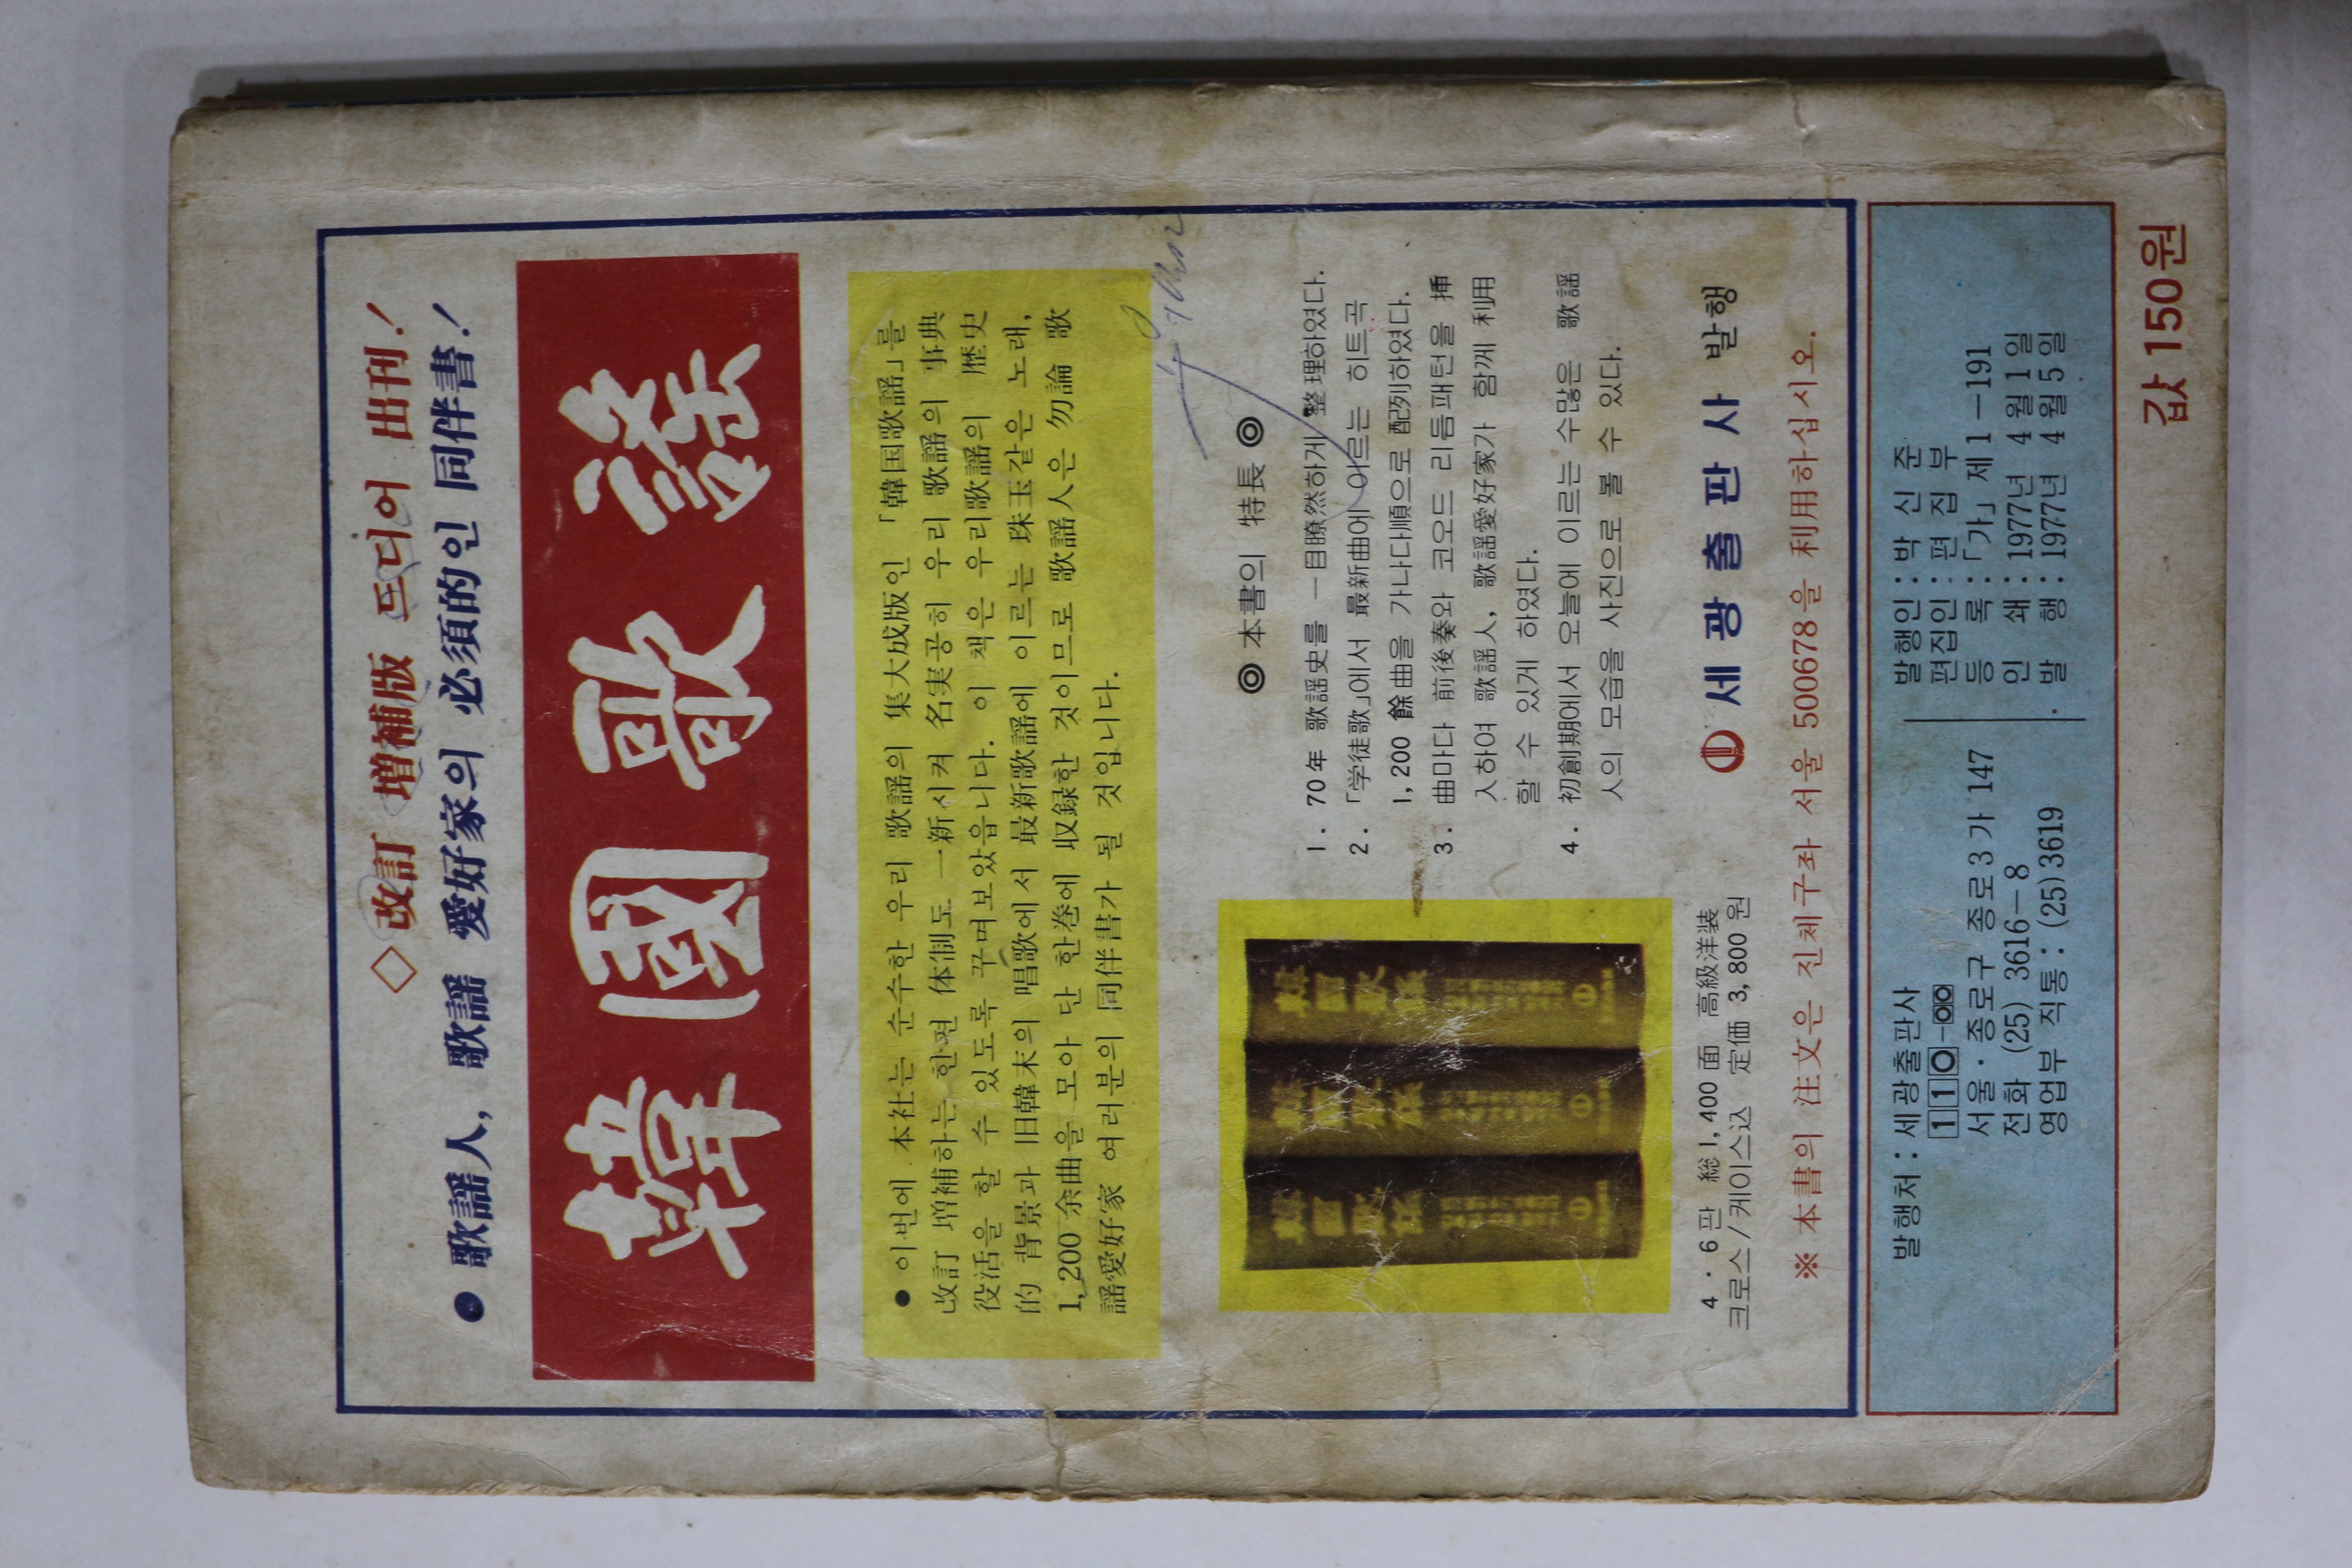 ◇改訂 増補版 드디어 出刊!
● 歌謡人, 歌謡 愛好家의 必須的인 同伴書!
韓國歌謠
● 이번에 本社는 순수한 우리 歌謡의 集大成版인 「韓国歌謡」를
改訂 増補하는 한편 体制도 一新시켜 名実공히 우리 歌謡의 事典
役活을 할 수 있도록 꾸며보았읍니다. 이 책은 우리歌謡의 歴史
的 背景과 旧韓末의 唱歌에서 最新歌謡에 이르는 珠玉같은 노래,
1,200余曲을 모아 단 한巻에 収録한 것이므로 歌謡人은 勿論 歌
謡愛好家 여러분의 同伴書가 될 것입니다.
◎ 本書의 特長 ◎
1. 70年 歌謡史를 一目瞭然하게 整理하였다.
2. 「学徒歌」에서 最新曲에 이르는 히트곡
1,200 餘曲을 가나다順으로 配列하였다.
3. 曲마다 前後奏와 코오드 리듬패턴을 挿
入하여 歌謡人, 歌謡愛好家가 함께 利用
할 수 있게 하였다.
4. 初創期에서 오늘에 이르는 수많은 歌謡
人의 모습을 사진으로 볼 수 있다.
4・6판 総1,400面 高級洋装
크로스/케이스込 定価 3,800원
세광출판사 발행
※本書의 注文은 진체구좌 서울 500678을 利用하십시오.
발행처 : 세광출판사
110-00
서울・종로구 종로3가 147
전화 (25) 3616-8
영업부 직통 : (25)3619
발행인 : 박 신 준
편집인 : 편 집 부
등 록 : 「가」제1-191
인 쇄 : 1977년 4월 1일
발 행 : 1977년 4월 5일
값 150원